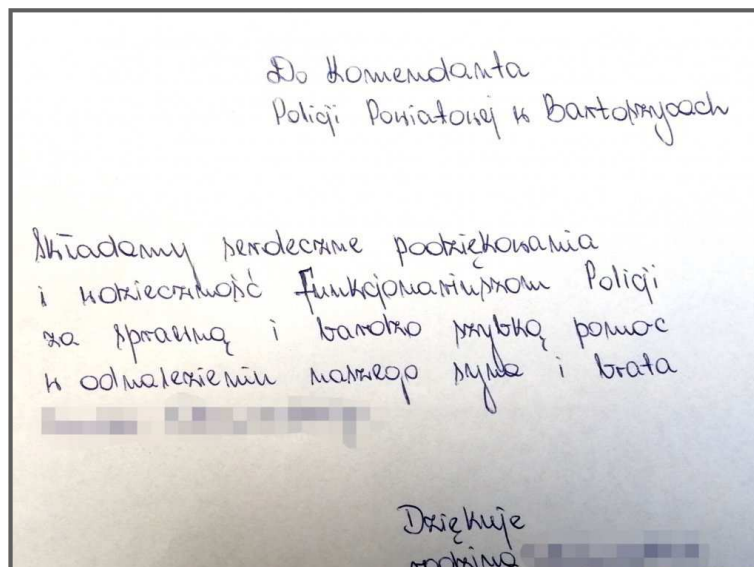 Do Komendanta
Policji Powiatowej w Bartoszycach
Składamy serdeczne podziękowania
i wdzieczność funkcjonariuszom Policji
za sprawną i bardzo szybką pomoc
w odnalezieniu naszego syna i brata
Dziękuje
rodzina